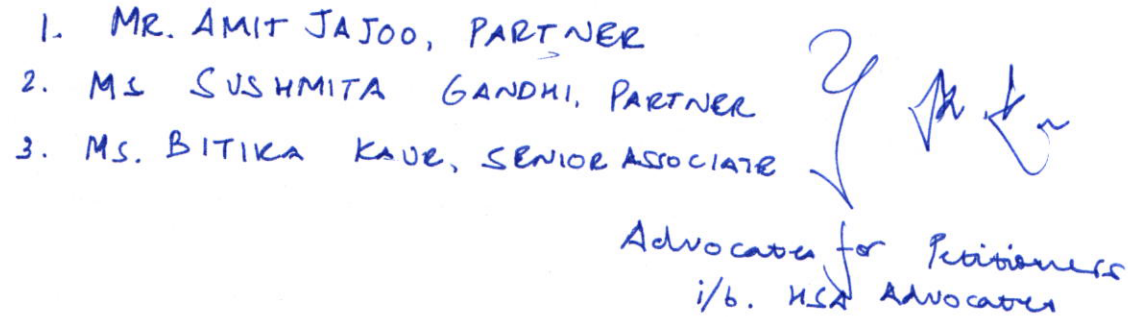 1. MR. AMIT JAJOO, PARTNER
2. MS SUSHMITA GANDHI, PARTNER
3. MS. BITIKA KAUR, SENIOR ASSOCIATE
Advocates for Petitioners
i/b. HSA Advocates